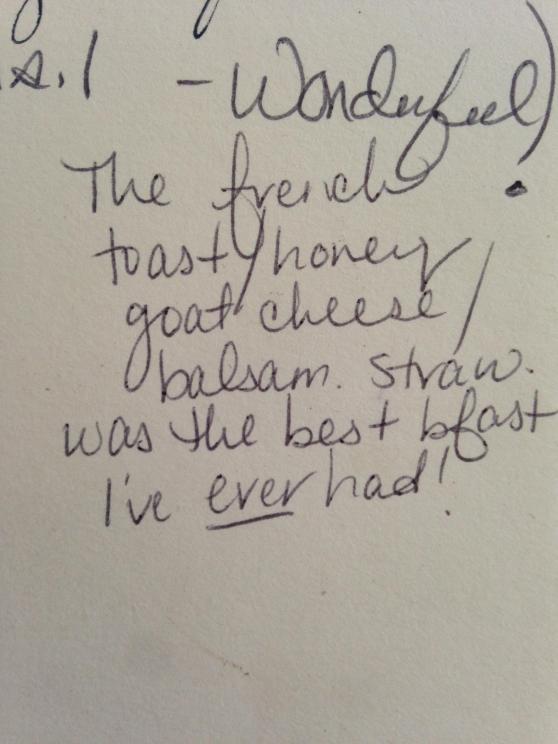 - Wonderful!
The french
toast/honey/
goat cheese/
balsam. straw.
was the best bfast
I've ever had!